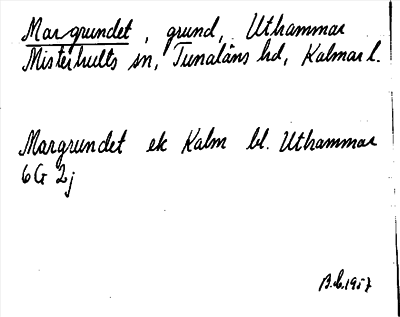 Margrundet, grund, Uthammar
Misterhults sn, Tunaläns hd, Kalmar l.
Margrundet ek Kalm bl. Uthammar
6G 2j
B.L. 1957